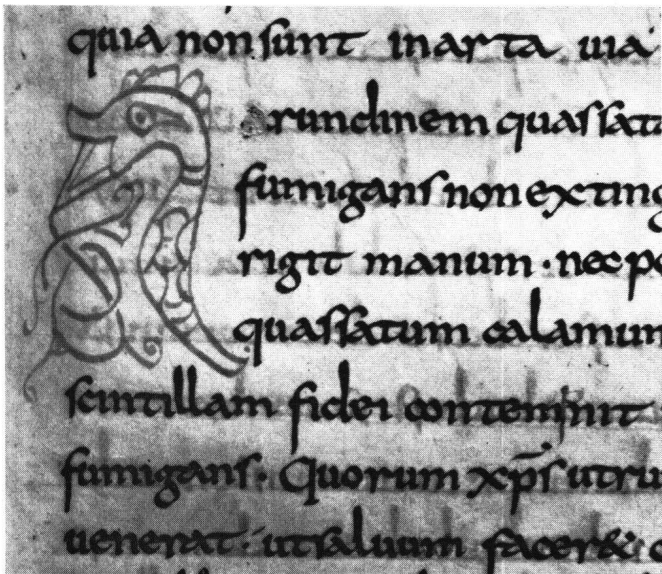 quia non sunt in arta uia
Arundinem quassata
fumigans non exting
rigit manum · nec po
quassatum calamum
scintillam fidei contemnit
fumigans · Quorum xp̄s utru
uenerat · ut saluum facer&